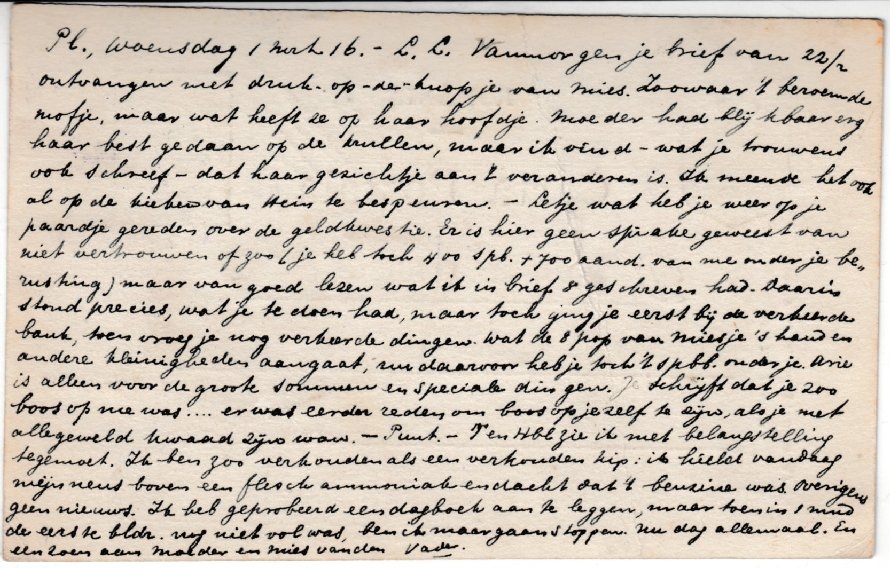 Pl., Woensdag 1 Mrt 16. - L. L. Vanmorgen je brief van 22/2
ontvangen met druk-op-de-knopje van Mies. Zoowaar 't beroemde
mofje, maar wat heeft ze op haar hoofdje. Moeder had blijkbaar erg
haar best gedaan op de krullen, maar ik vind - wat je trouwens
ook schreef - dat haar gezichtje aan 't veranderen is. Ik meende het ook
al op de kieken van Hein te bespeuren. - Letje wat heb je weer op je
paardje gereden over de geldkwestie. Er is hier geen sprake geweest van
niet vertrouwen of zoo (je heb toch 400 spb. + 700 aand. van me onder je be-
rusting) maar van goed lezen wat ik in brief 8 geschreven had. Daarin
stond precies, wat je te doen had, maar toch ging je eerst bij de verkeerde
bank, toen vroeg je nog verkeerde dingen. Wat de 8 pop van Miesje's handen
andere kleinigheden aangaat, nu daarvoor heb je toch 't spbb. onder je. Arie
is alleen voor de groote sommen en speciale dingen. Je schrijft dat je zoo
boos op me was.... er was eerder reden om boos op jezelf te zijn, als je met
allegeweld kwaad zijn wou. - Punt. - T en Hbl zie ik met belangstelling
tegemoet. Ik ben zoo verkouden als een verkouden kip: ik hield vandaag
mijn neus boven een flesch ammoniak en dacht dat 't benzine was. Overigens
geen nieuws. Ik heb geprobeerd een dagboek aan te leggen, maar toen in 1 mnd
de eerste bldz. nog niet vol was, ben ik maar gaan stoppen. Nu dag allemaal. En
een zoen aan Moeder en Mies van den Vader.